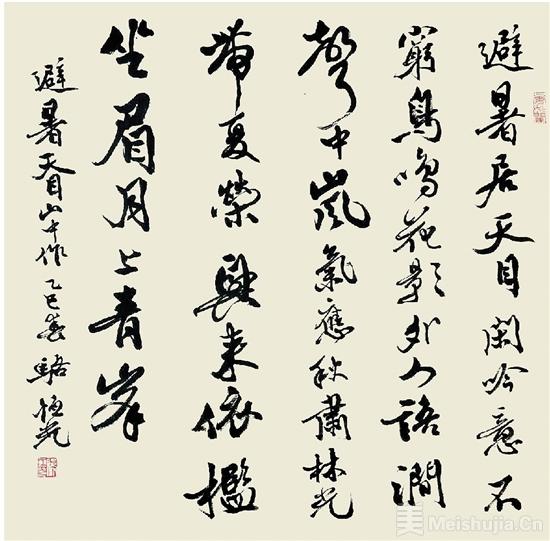 避暑居天目閑吟意不
窮鳥鳴花影外人語澗
聲中嵐氣應秋肅林光
帶夏榮興來依檻
坐眉月上青峯
避暑天目山中作 乙巳春 駱恒光
美 Meishujia.Cn